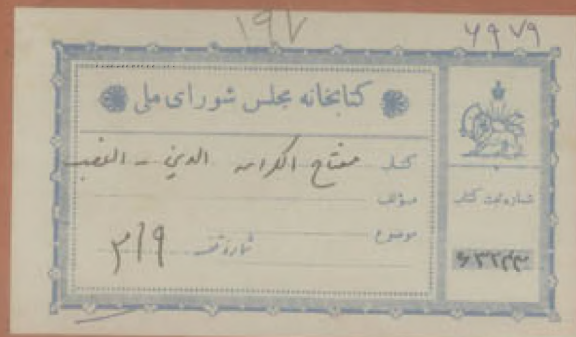 ۱۹۷
۶۹۷۹
کتابخانه مجلس شورای ملی
کتاب مفتاح الکرامه الدین - الغصب
مؤلف
موضوع
شماره قفسه ۳۱۹
شماره ثبت کتاب
۶۳۲۳۳